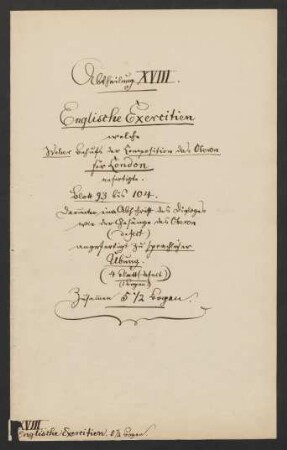 Abtheilung XVIII.
Englische Exercitien
welche
Weber behufs der Composition des Oberon
für London
anfertigte.
Blatt 93 bis 104.
Darunter eine Abschrift des Dialoges
wie der Gesänge des Oberon
angefertigt zu sprachlicher
Übung.
(4 Blatt
Bogen)
Zusammen 5 1/2 Bogen.
XVIII
Englische Exercitien. 5 1/2 Bogen.